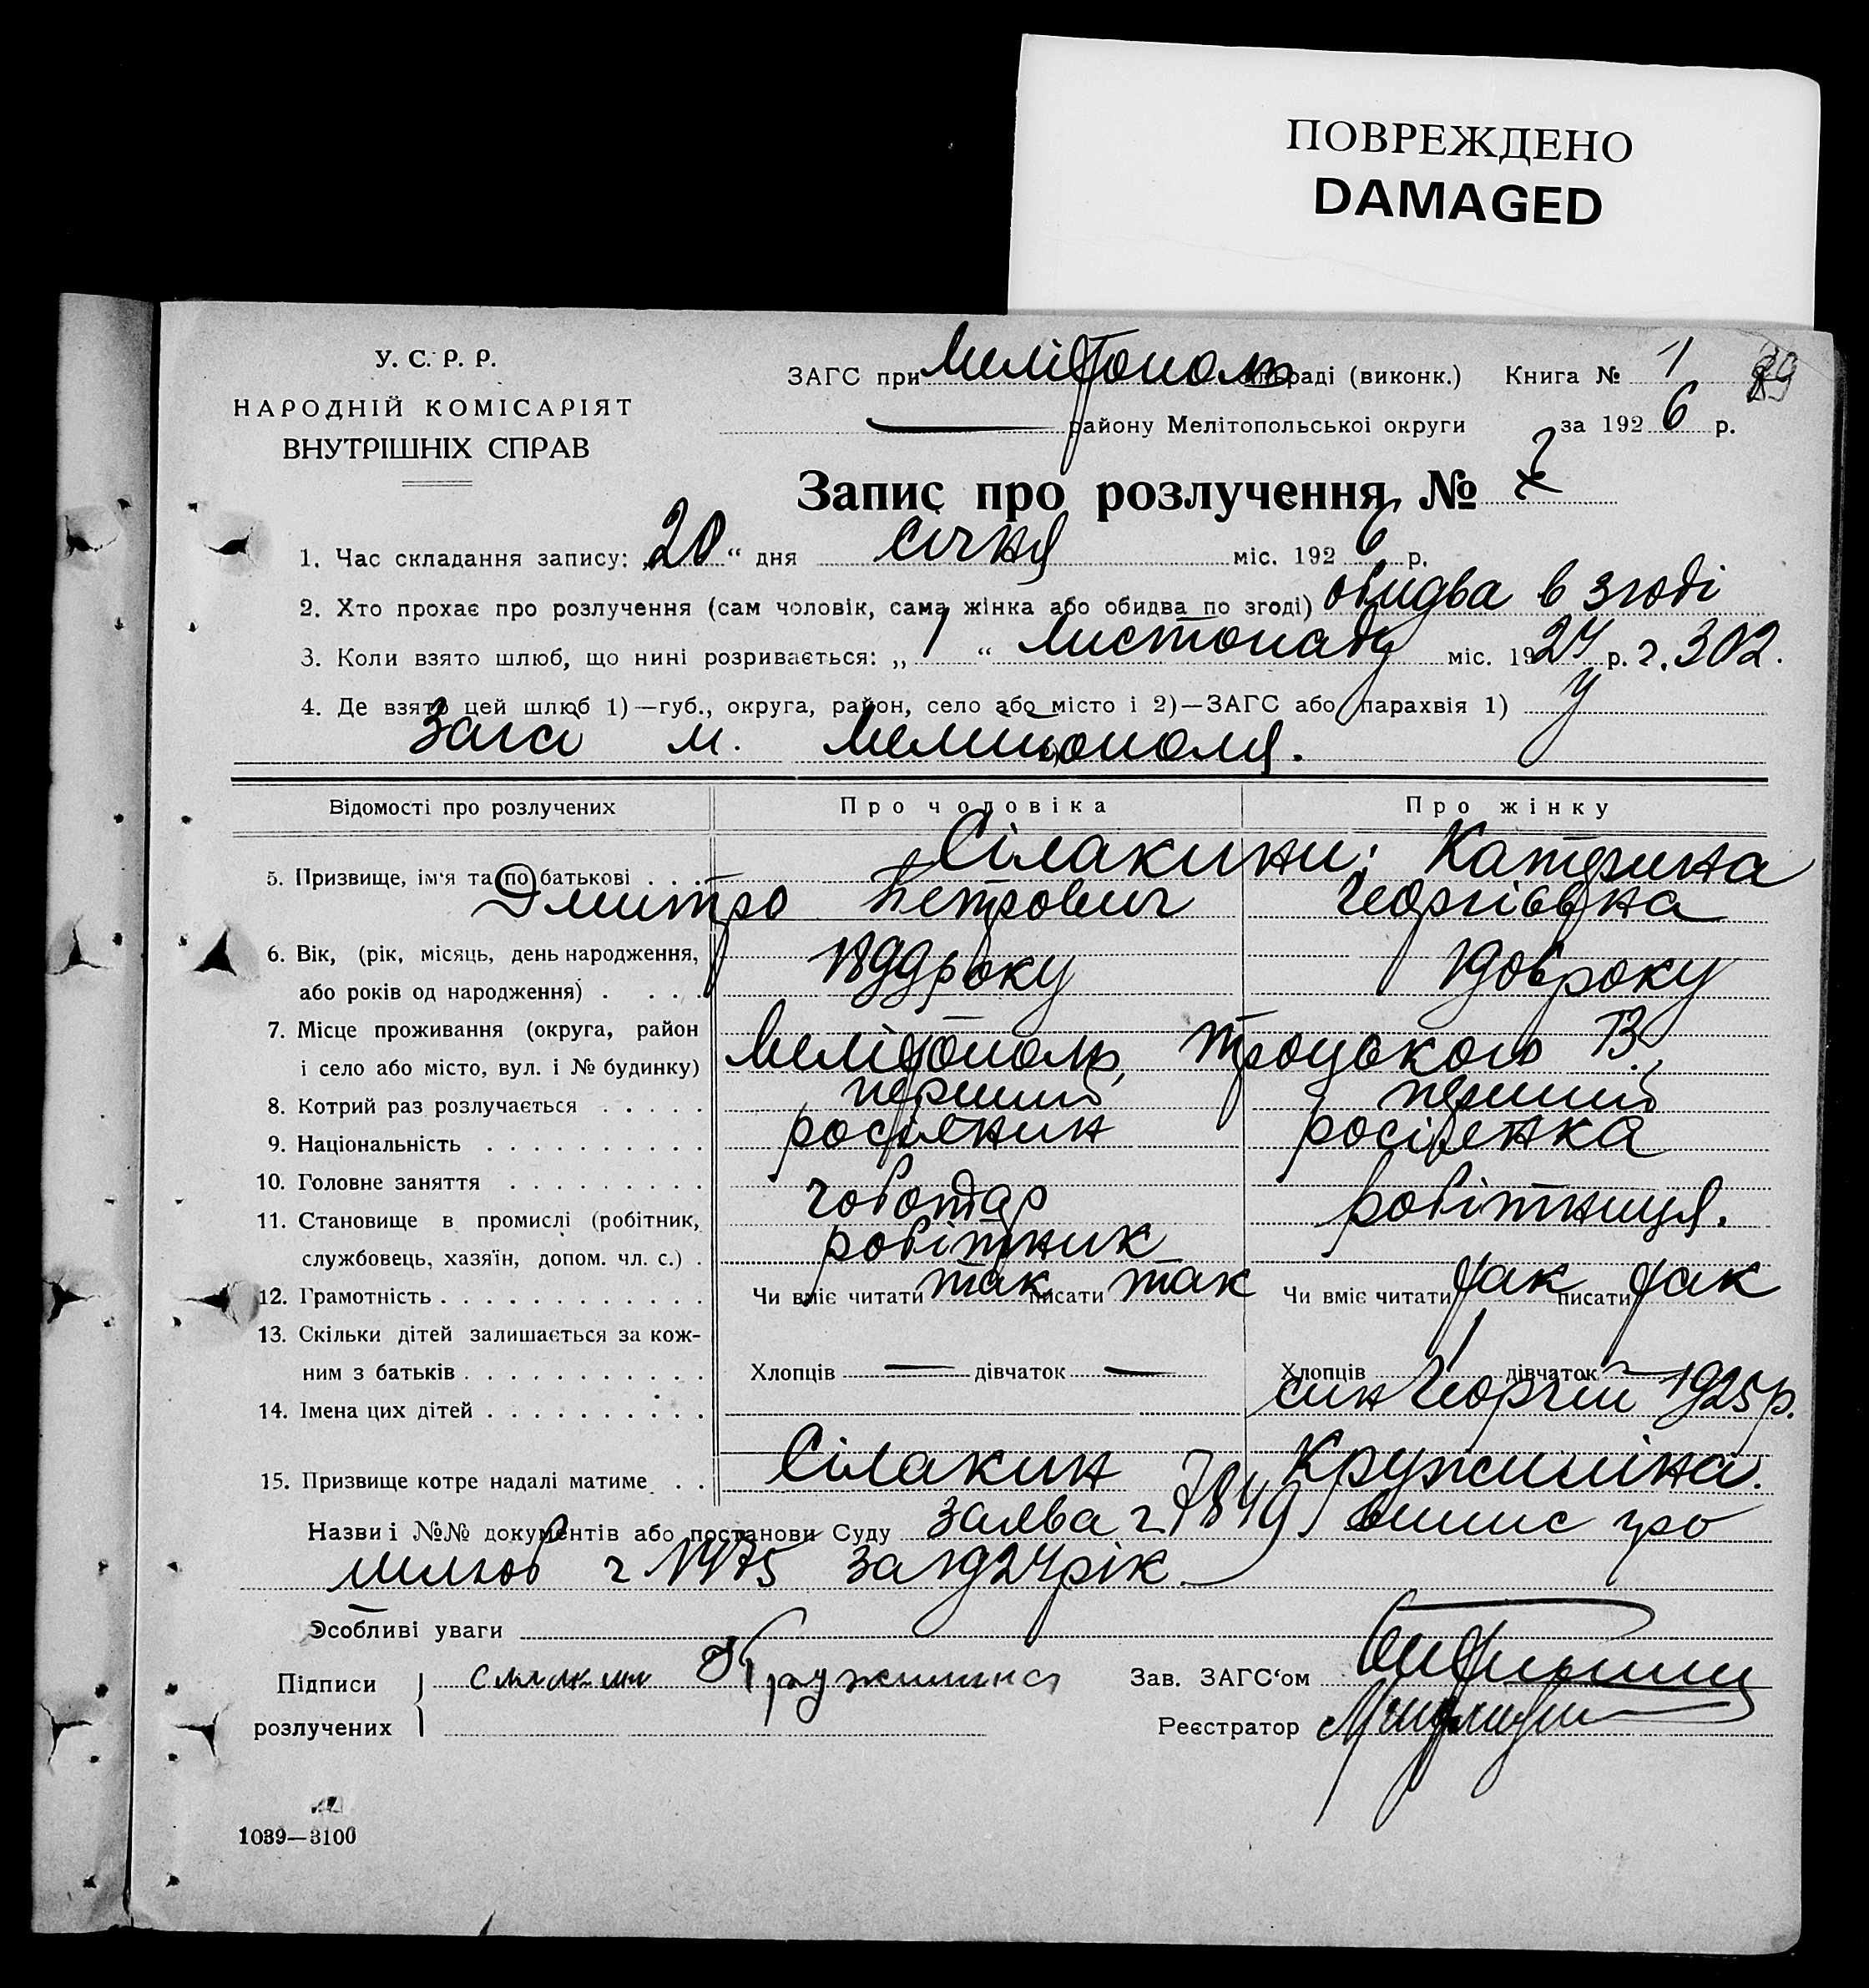 ПОВРЕЖДЕНО
DAMAGED
У. С. Р. Р.
НАРОДНІЙ КОМІСАРІЯТ
ВНУТРІШНІХ СПРАВ
ЗАГС при Мелітополь сільраді (виконк.) Книга № 1
району Мелітопольської округи за 1926 р.
Запис про розлучення №
1. Час складання запису: 20 “ дня січня міс. 1926 р.
2. Хто прохає про розлучення (сам чоловік, сама жінка або обидва по згоді) обидва в згоді
3. Коли взято шлюб, що нині розривається: „ 1 “ листопаду міс. 1924 р. ч. 302.
4. Де взято цей шлюб 1)—губ., округа, район, село або місто і 2)—ЗАГС або парахвія 1) у
Загсі м. Мелітополя.
Відомості про розлучених Про чоловіка Про жінку
5. Призвище, ім‘я та по батькові . . . Сілакини: Катерина
Дмитро Петрович Георгіевна
6. Вік, (рік, місяць, день народження, 1899 року 1906 року
або років од народження) . . . .
7. Місце проживання (округа, район
і село або місто, вул. і № будинку) Мелітополь, Троцького 13.
8. Котрий раз розлучається . . . . . перший перший
9. Національність . . . . . . . . . . росіянин росіянка
10. Головне заняття . . . . . . . . . чоботар робітниця.
11. Становище в промислі (робітник,
службовець, хазяїн, допом. чл. с.) . робітник
12. Грамотність . . . . . . . . . . . . Чи вміє читати так писати так Чи вміє читати так писати так
13. Скільки дітей залишається за кож-
ним з батьків . . . . . . . . . . . Хлопців — дівчаток — Хлопців 1 дівчаток —
14. Імена цих дітей . . . . . . . . . . син Георгій 1925 р.
15. Призвище котре надалі матиме . . Сілакин Кружиліна.
Назви і №№ документів або постанови Суду заява ч 7849, випис про
шлюб ч 1475 за 1924 рік
Особливі уваги
Підписи Кружилина Зав. ЗАГС‘ом
розлучених Реєстратор
1039—3100